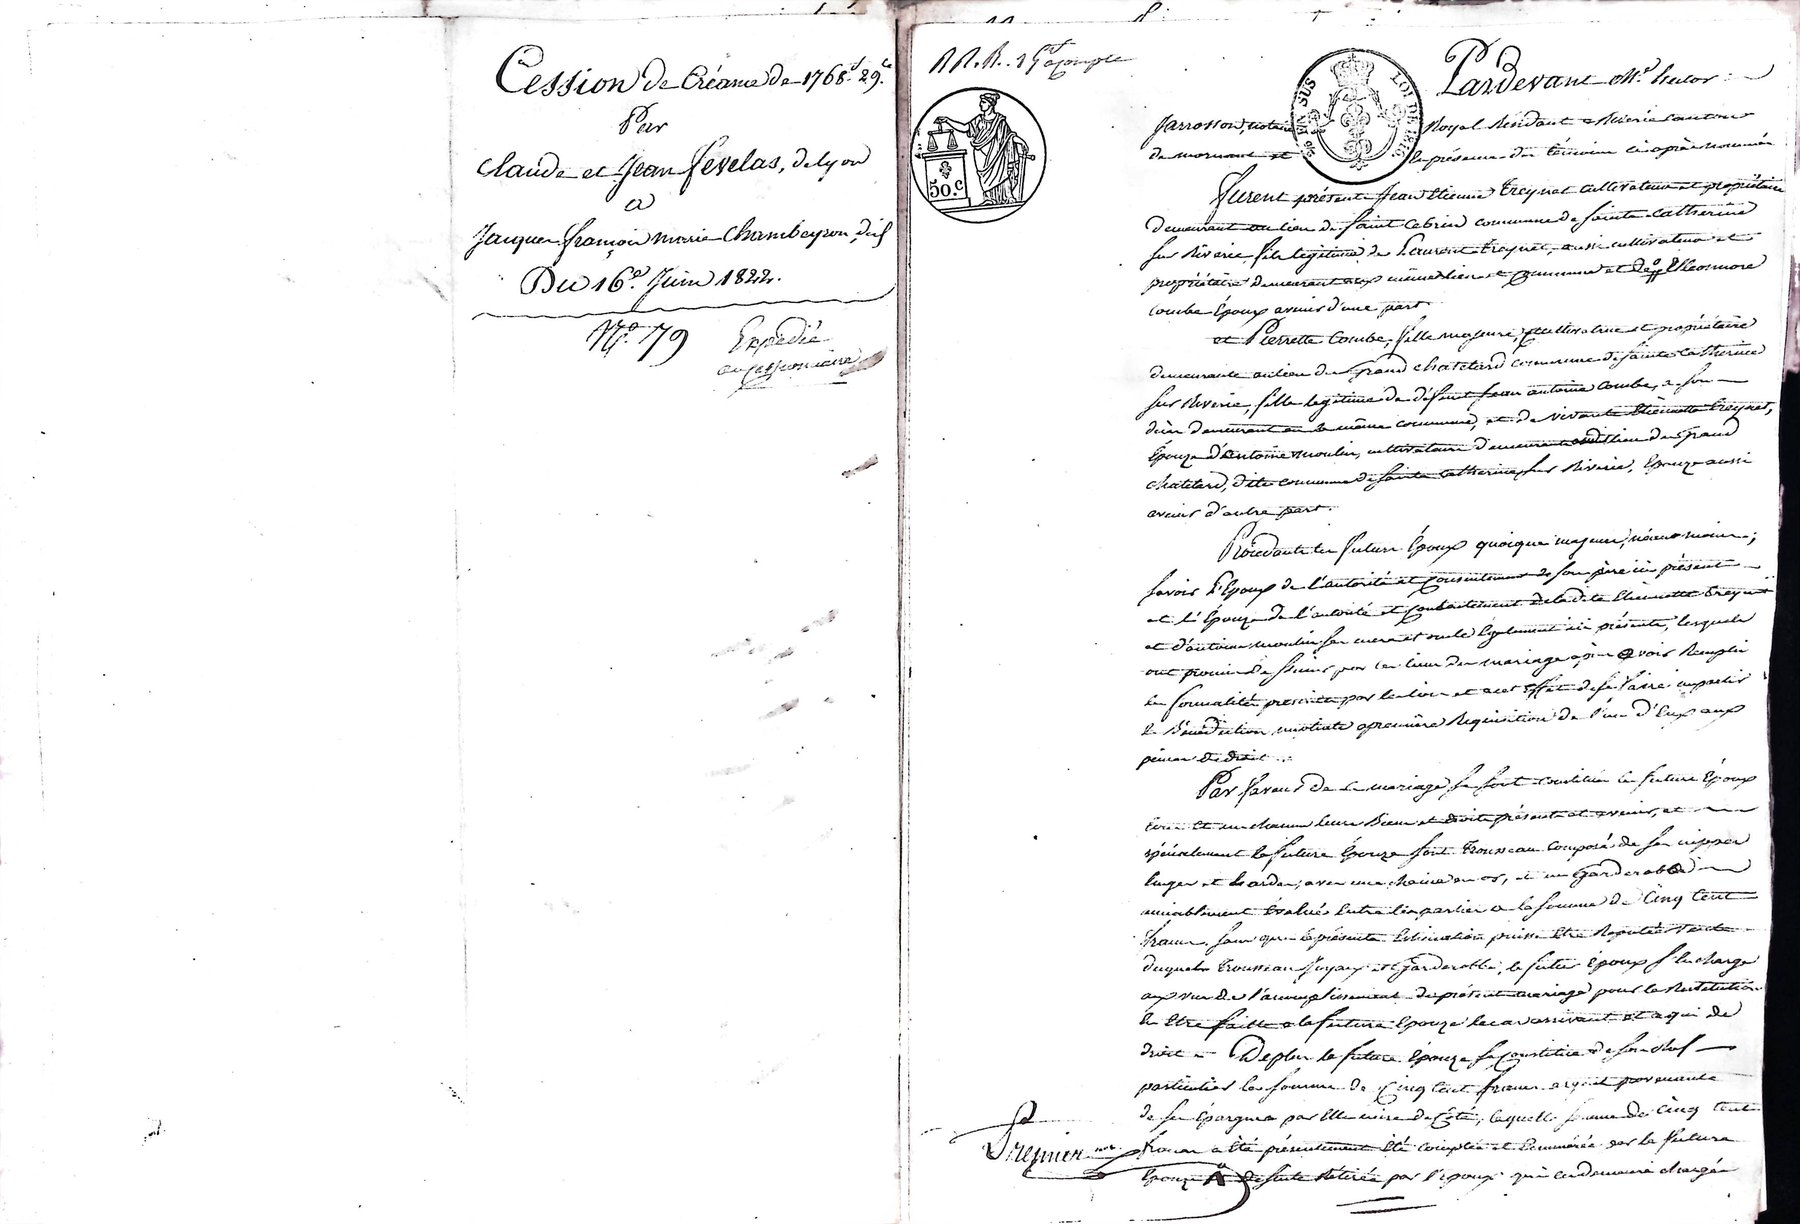 Cession de Créance de 1768.f 29.c
Par
Claude et Jean Fevelas, de Lyon
a
Jacques françois marie Chambeyron, dud.
Du 16.e Juin 1822.
N.o 79 Expédié
au cessionnaire
R.R.R. 3
50.c
EN SUS
LOI DE 1816
Pardevant M.e hector
Jarrosson, notaire Royal Résidant a Riverie canton
de mornant et la présence des témoins ci après nommés
furent présents Jean Etienne Treynet cultivateur et propriétaire
demeurant au lieu de Saint Cebrin commune de Sainte Catherine
sur Riverie fils légitime de Laurent Treynet, aussi cultivateur et
propriétaire demeurant aux mêmes lieu et commune et de Eléonnore
Combe Époux avenir d'une part.
et Pierrette Combe, fille majeure, cultivatrice et propriétaire
demeurante au lieu du Grand chatelard commune de Sainte Catherine
sur Riverie, fille légitime de défunt Jean antoine Combe, a son
décès demeurant en la même commune, et de vivante Etiennette Treynet,
Épouze d'antoine moulin, cultivateur demeurant audit lieu du Grand
chatelard, dite commune de Sainte Catherine sur Riverie, Épouze aussi
avenir d'autre part.
Procédants les future Époux quoique majeurs, néanmoins,
savoir l'Époux de l'autorité et consentement de son père ici présent
et l'Épouze de l'autorité et consentement de la dite Etiennette Treynet
et d'antoine moulin sa mere et égallement ici présents, lesquels
ont promis de s'unir par les liens du mariage après avoir Remplis
les formalités prescrites par les lois et a cet Effet de se faire impartir
la Bénédiction nuptiale a première Réquisition de l'un d'Eux aux
peines de droit.
Par faveur de ce mariage se sont constitués les future Époux
tous et un chacun leurs Biens et droits présents et avenir, et
spécialement la future Épouze son Trousseau composé de ses nippes
linges et hardes, avec une chaine en or, et un Garderobe
amiablement Évalués Entre les parties a la somme de Cinq Cent
francs sans que la présente Estimation puisse Etre Réputée vente
duquel Trousseau Joyaux et Garderobbe, le futur Époux s'en charge
aux vue de l'accomplissement du présent mariage pour la Restitution
En Etre faitte a la future Épouze le cas arrivant et a qui de
droit - Deplus la future Épouze se Constitue de son chef
particulier la somme de Cinq Cent francs argent provenants
de ses Épargnes par Elle mise de Côté, laquelle somme de Cinq Cent
francs a Été présentement Été comptée et Enumérée par la future
Épouze Et de suite Retirée par l'époux qui en demeure chargée